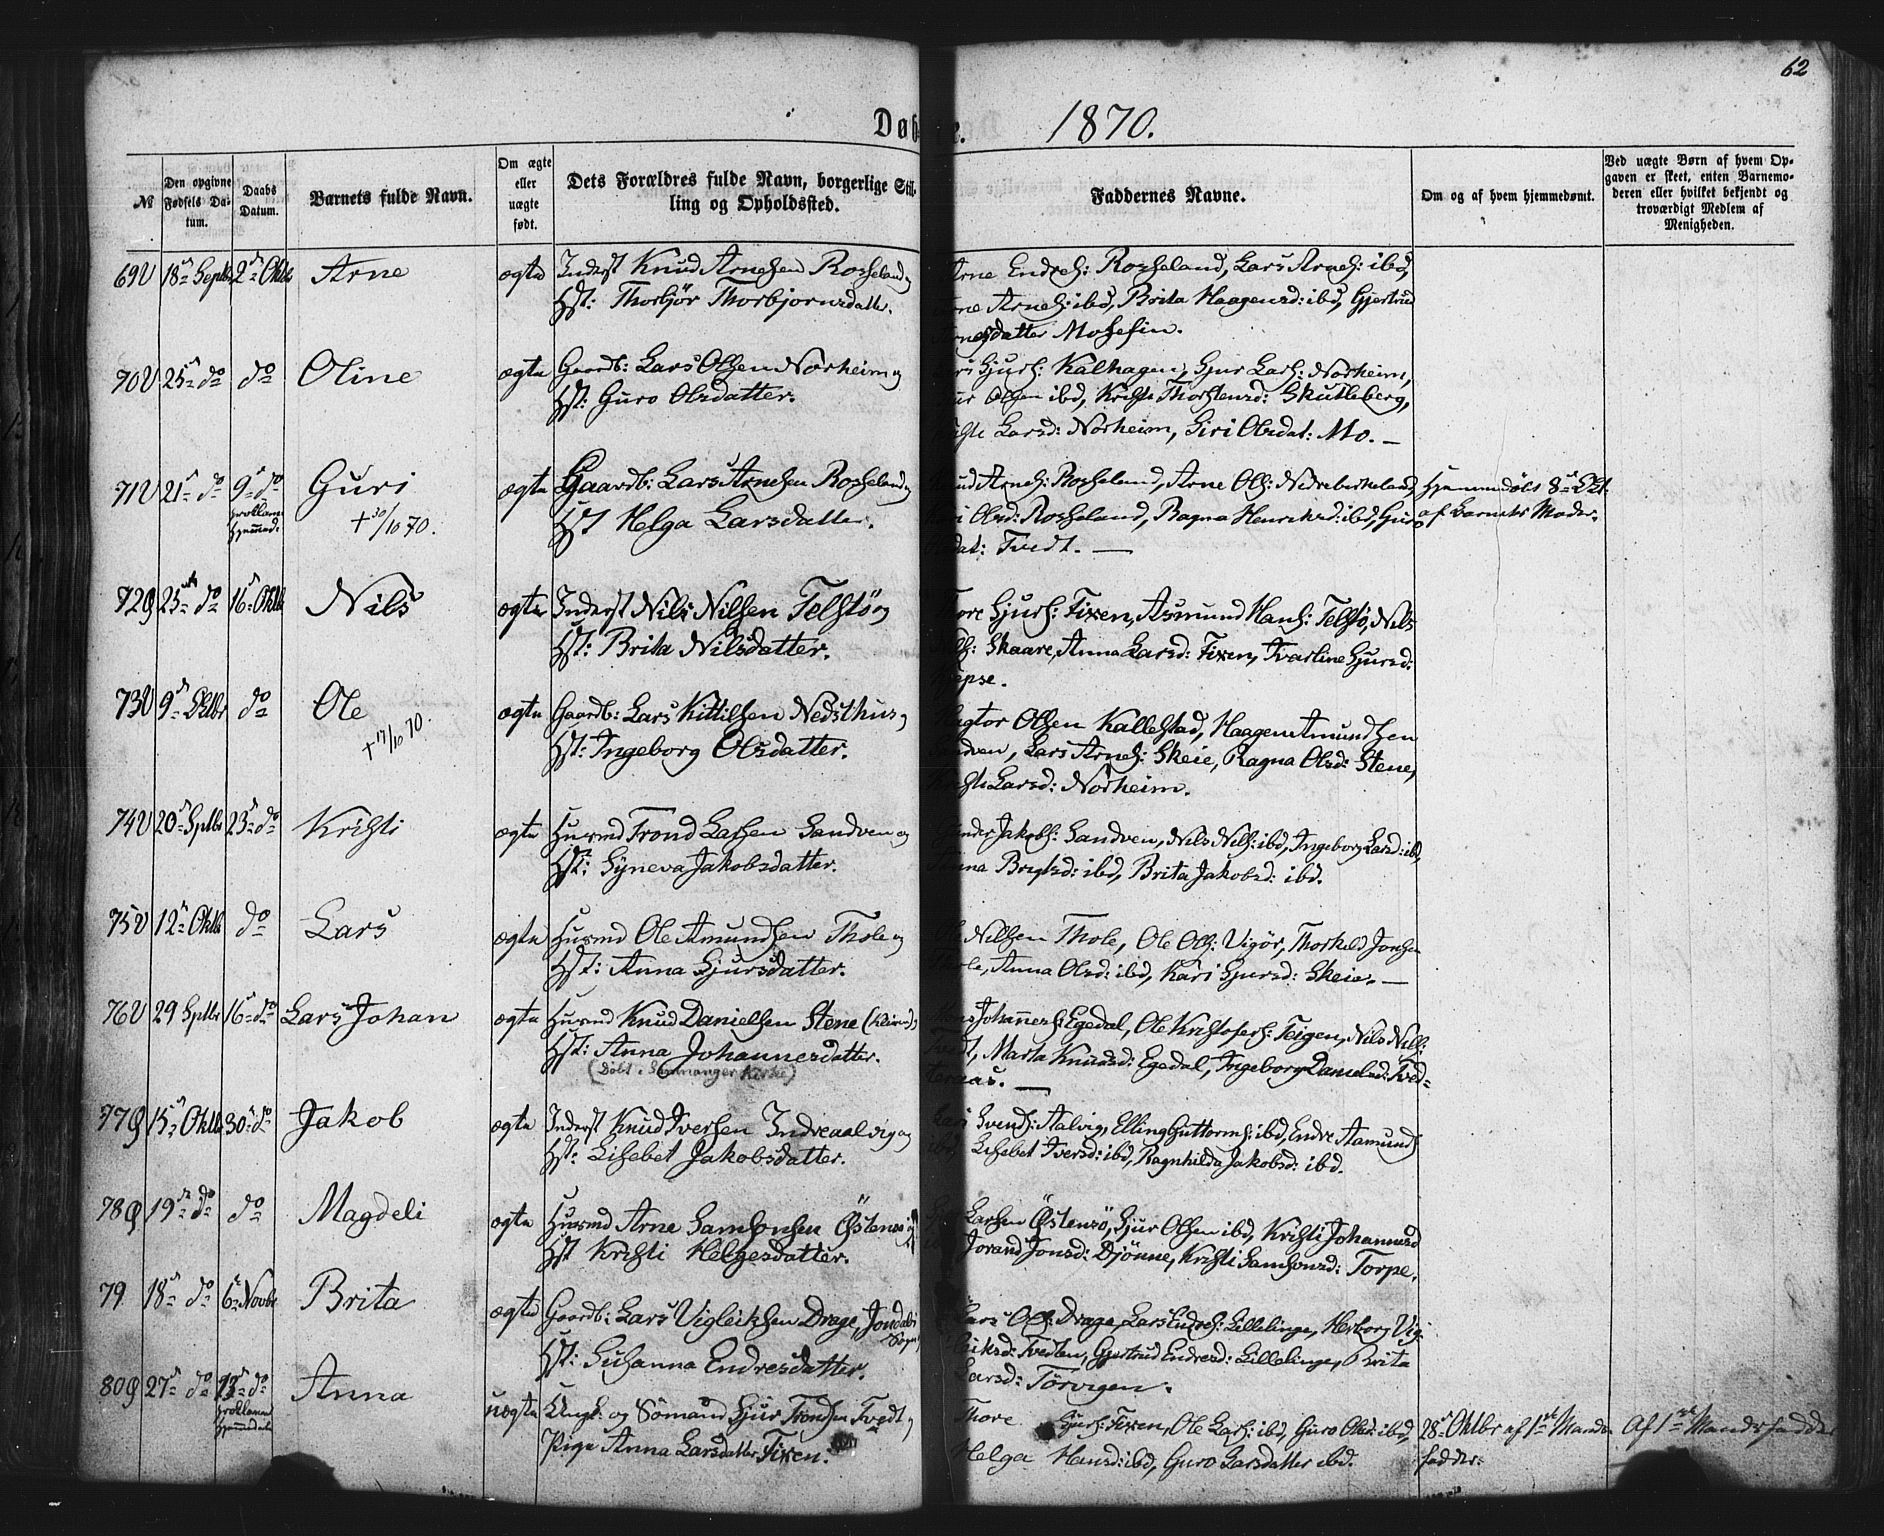 62
Døbte. 1870.
№
Den opgivne Fødsels Datum.
Daabs Datum.
Barnets fulde Navn.
Om ægte eller uægte født.
Dets Forældres fulde Navn, borgerlige Stilling og Opholdssted.
Faddernes Navne.
Om og af hvem hjemmedøbt.
Ved uægte Børn af hvem Opgaven er skeet, enten Barnemoderen eller hvilket bekjendt og troværdigt Medlem af Menigheden.
69V 18de Septbr 2den Oktbr Arne ægte Inderst Knud Arnesen Rosseland og
Hst: Thorbjør Thorbjornsdatter.
Arne Endres: Rosseland, Lars Arnes: ibd,
Arnes: ibd, Brita Haagensd: ibd, Gjertrud
Arnesdatter Mosesin.
70V 25de do do Oline ægte Gaardb: Lars Olsen Norheim og
Hst: Guro Olsdatter.
Sjurs: Kalhagen, Sjur Lars: Norheim,
Olsen ibd, Kristi Thorstensd: Skutleberg,
Larsd: Norheim, Siri Olsdat: Mo. —
71V 21de do 9de do Guri ægte Gaardb: Lars Arnesen Rosseland og
Hst Helga Larsdatter.
+ 30/10 70.
Knud Arnes: Rosseland, Arne Ols: Nedreberkeland,
Olsd: Rosseland, Ragna Henriksd: ibd, Guro
Tvedt. —
Hjemmedøbt 8de Okt.
af Barnets Moder.
72Ø 25de do 16de Oktbr Nils ægte Inderst Nils Nilsen Telstø og
Hst: Brita Nilsdatter.
Thore Sjurs: Fixen, Asmund Hans: Telstø, Nils
Nils: Skaare, Anna Larsd: Fixen, Ivarline Sjursd:
73V 9de Oktbr do Ole ægte Gaardb: Lars Kittilsen Nedsthus og
Hst: Ingeborg Olsdatter.
+ 17/10 70.
Olsen Kallestad, Haagen Amundsen
Sandven, Lars Arnes: Skeie, Ragna Olsd: Stene,
Kristi Larsd: Norheim.
74V 20de Sptbr 23de do Kristi ægte Husmd Trond Larsen Sandven og
Hst: Syneva Jakobsdatter.
Jakobs: Sandven, Nils Nils: ibd, Ingeborg Larsd: ibd,
ibd, Brita Jakobsd: ibd.
75V 12de Oktbr do Lars ægte Husmd Ole Amundsen Thole og
Hst: Anna Sjursdatter.
Nilsen Thole, Ole Ols: Vigør, Thorkeld Jonsen
Thole, Anna Olsd: ibd, Kari Sjursd: Skeie. —
76V 29 Sptbr 16de do Lars Johan ægte Husmd Knud Danielsen Stene
Hst: Anna Johannesdatter.
(Døbt i Samnanger Kirke)
Johannes: Egedal, Ole Kristofers: Teigen, Nils Nils:
Tvedt, Marta Knudsd: Egedal, Ingeborg Danielsd: Tved-
teraas. —
77Ø 15de Oktbr 30de do Jakob ægte Inderst Knud Iversen Indreaalvig og
Hst: Lisebet Jakobsdatter.
Svends: Aalvig, Elling Guttorms: ibd, Endre Aamunds
ibd, Lisebet Iversd: ibd, Ragnhilda Jakobsd: ibd.
78Ø 19de do do Magdeli ægte Husmd Arne Samsonsen Østensø og
Hst Kristi Helgesdatter.
Larsen Østensø, Sjur Olsen ibd, Kristi Johannesd
Jorand Jonsd: Djønne, Kristi Samsonsd: Torpe.
79 18de do 6te Novbr Brita ægte Gaardb: Lars Vigleiksen Drage, Jondals
Sogn
Hst: Susanna Endresdatter.
Lars Ols: Drage, Lars Endres: Lillelinge, Herborg Vig-
leiksd: Tvedten, Gjertrud Endresd: Lillelinge, Brita
Larsd: Tørvigen.
80Ø 27de do do Anna uægte Ungk: og Sømand Sjur Trondsen Tvedt og
Pige Anna Larsdatter Fixen.
Thore Sjurs: Fixen, Ole Lars: ibd, Guro Olsd: ibd,
Helga Hansd: ibd, Guro Larsdatter ibd.
28de Oktbr af 1ste Mands-
fadder.
Af 1ste Mandsfadder